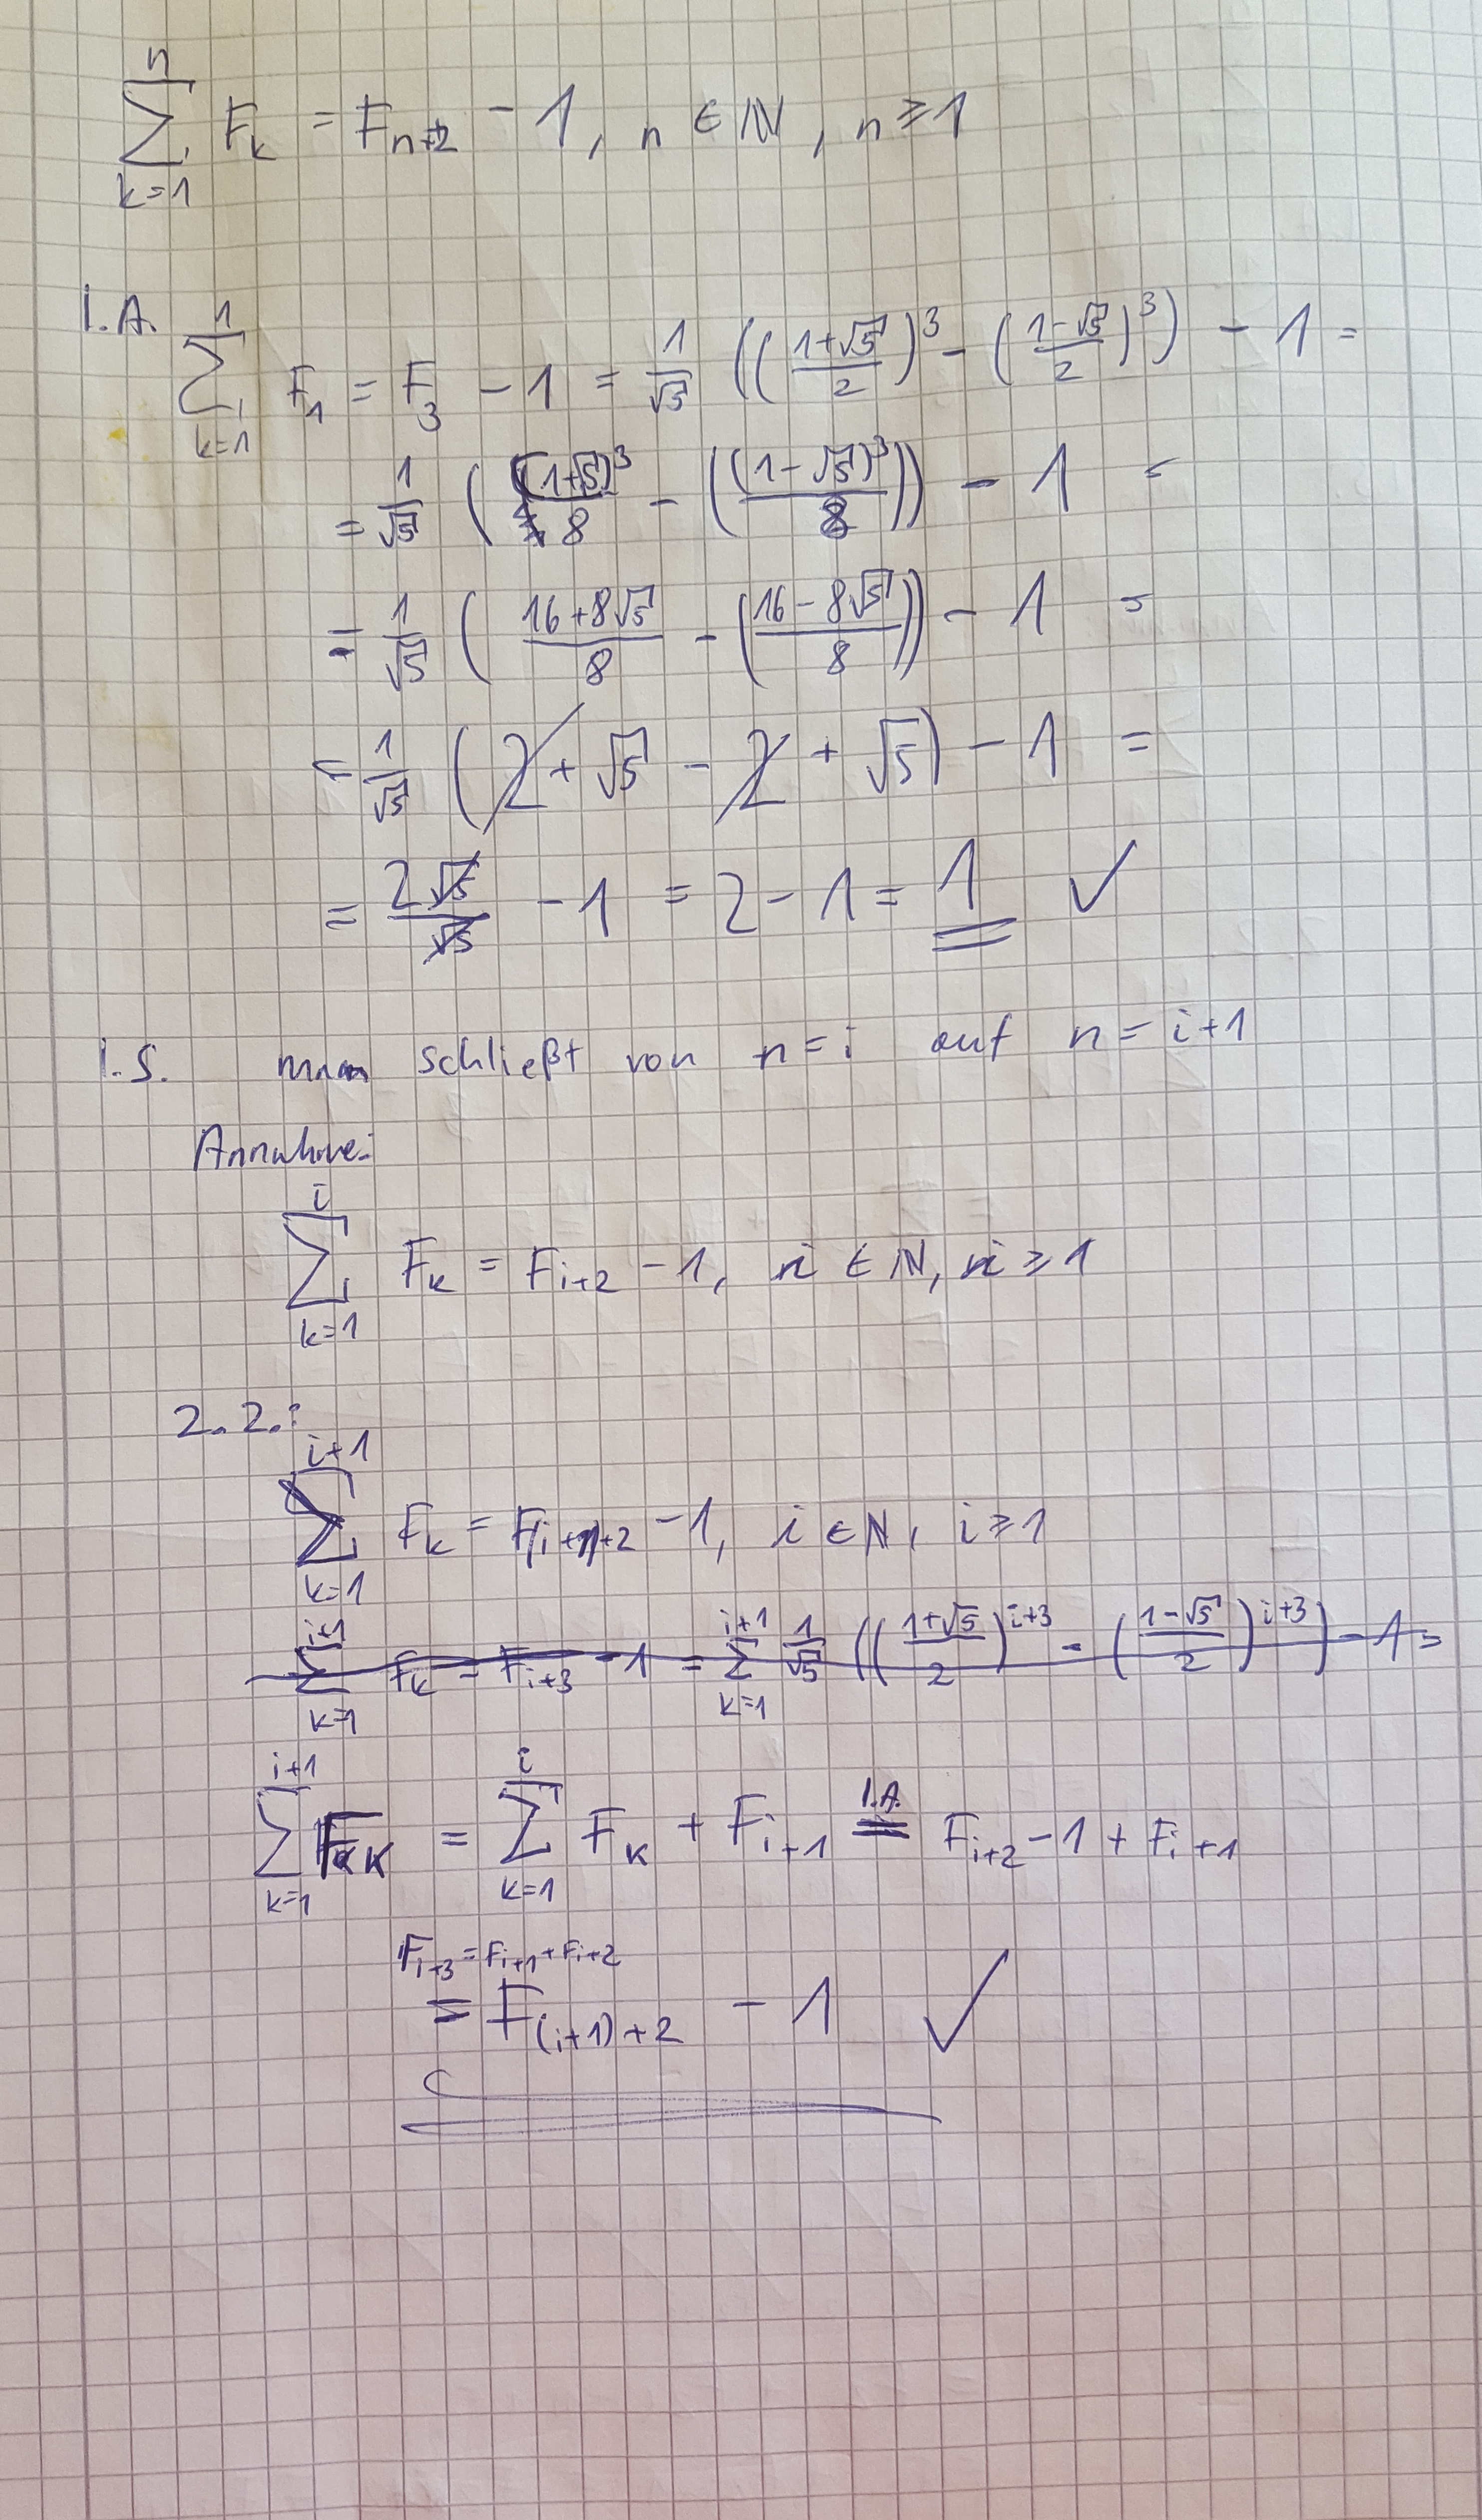 \sum_{k=1}^{n} F_k = F_{n+2} - 1, n ∈ ℕ, n ≥ 1
I.A. \sum_{k=1}^{1} F_1 = F_3 - 1 = \frac{1}{\sqrt{5}} ((\frac{1+\sqrt{5}}{2})^3 - (\frac{1-\sqrt{5}}{2})^3) - 1 =
= \frac{1}{\sqrt{5}} (\frac{(1+\sqrt{5})^3}{8} - (\frac{(1-\sqrt{5})^3}{8})) - 1 =
= \frac{1}{\sqrt{5}} (\frac{16+8\sqrt{5}}{8} - (\frac{16-8\sqrt{5}}{8})) - 1 =
= \frac{1}{\sqrt{5}} (2 + \sqrt{5} - 2 + \sqrt{5}) - 1 =
= \frac{2\sqrt{5}}{\sqrt{5}} - 1 = 2 - 1 = 1 ✓
I.S. man schließt von n = i auf n = i+1
Annahme:
\sum_{k=1}^{i} F_k = F_{i+2} - 1, i ∈ ℕ, i ≥ 1
z.z.:
\sum_{k=1}^{i+1} F_k = F_{i+1+2} - 1, i ∈ ℕ, i ≥ 1
\sum_{k=1}^{i+1} F_k = F_{i+3} - 1 = \sum_{k=1}^{i+1} \frac{1}{\sqrt{5}} ((\frac{1+\sqrt{5}}{2})^{i+3} - (\frac{1-\sqrt{5}}{2})^{i+3}) - 1 =
\sum_{k=1}^{i+1} F_k = \sum_{k=1}^{i} F_k + F_{i+1} \overset{I.A.}{=} F_{i+2} - 1 + F_{i+1}
F_{i+3} = F_{i+1} + F_{i+2}
= F_{(i+1)+2} - 1 ✓